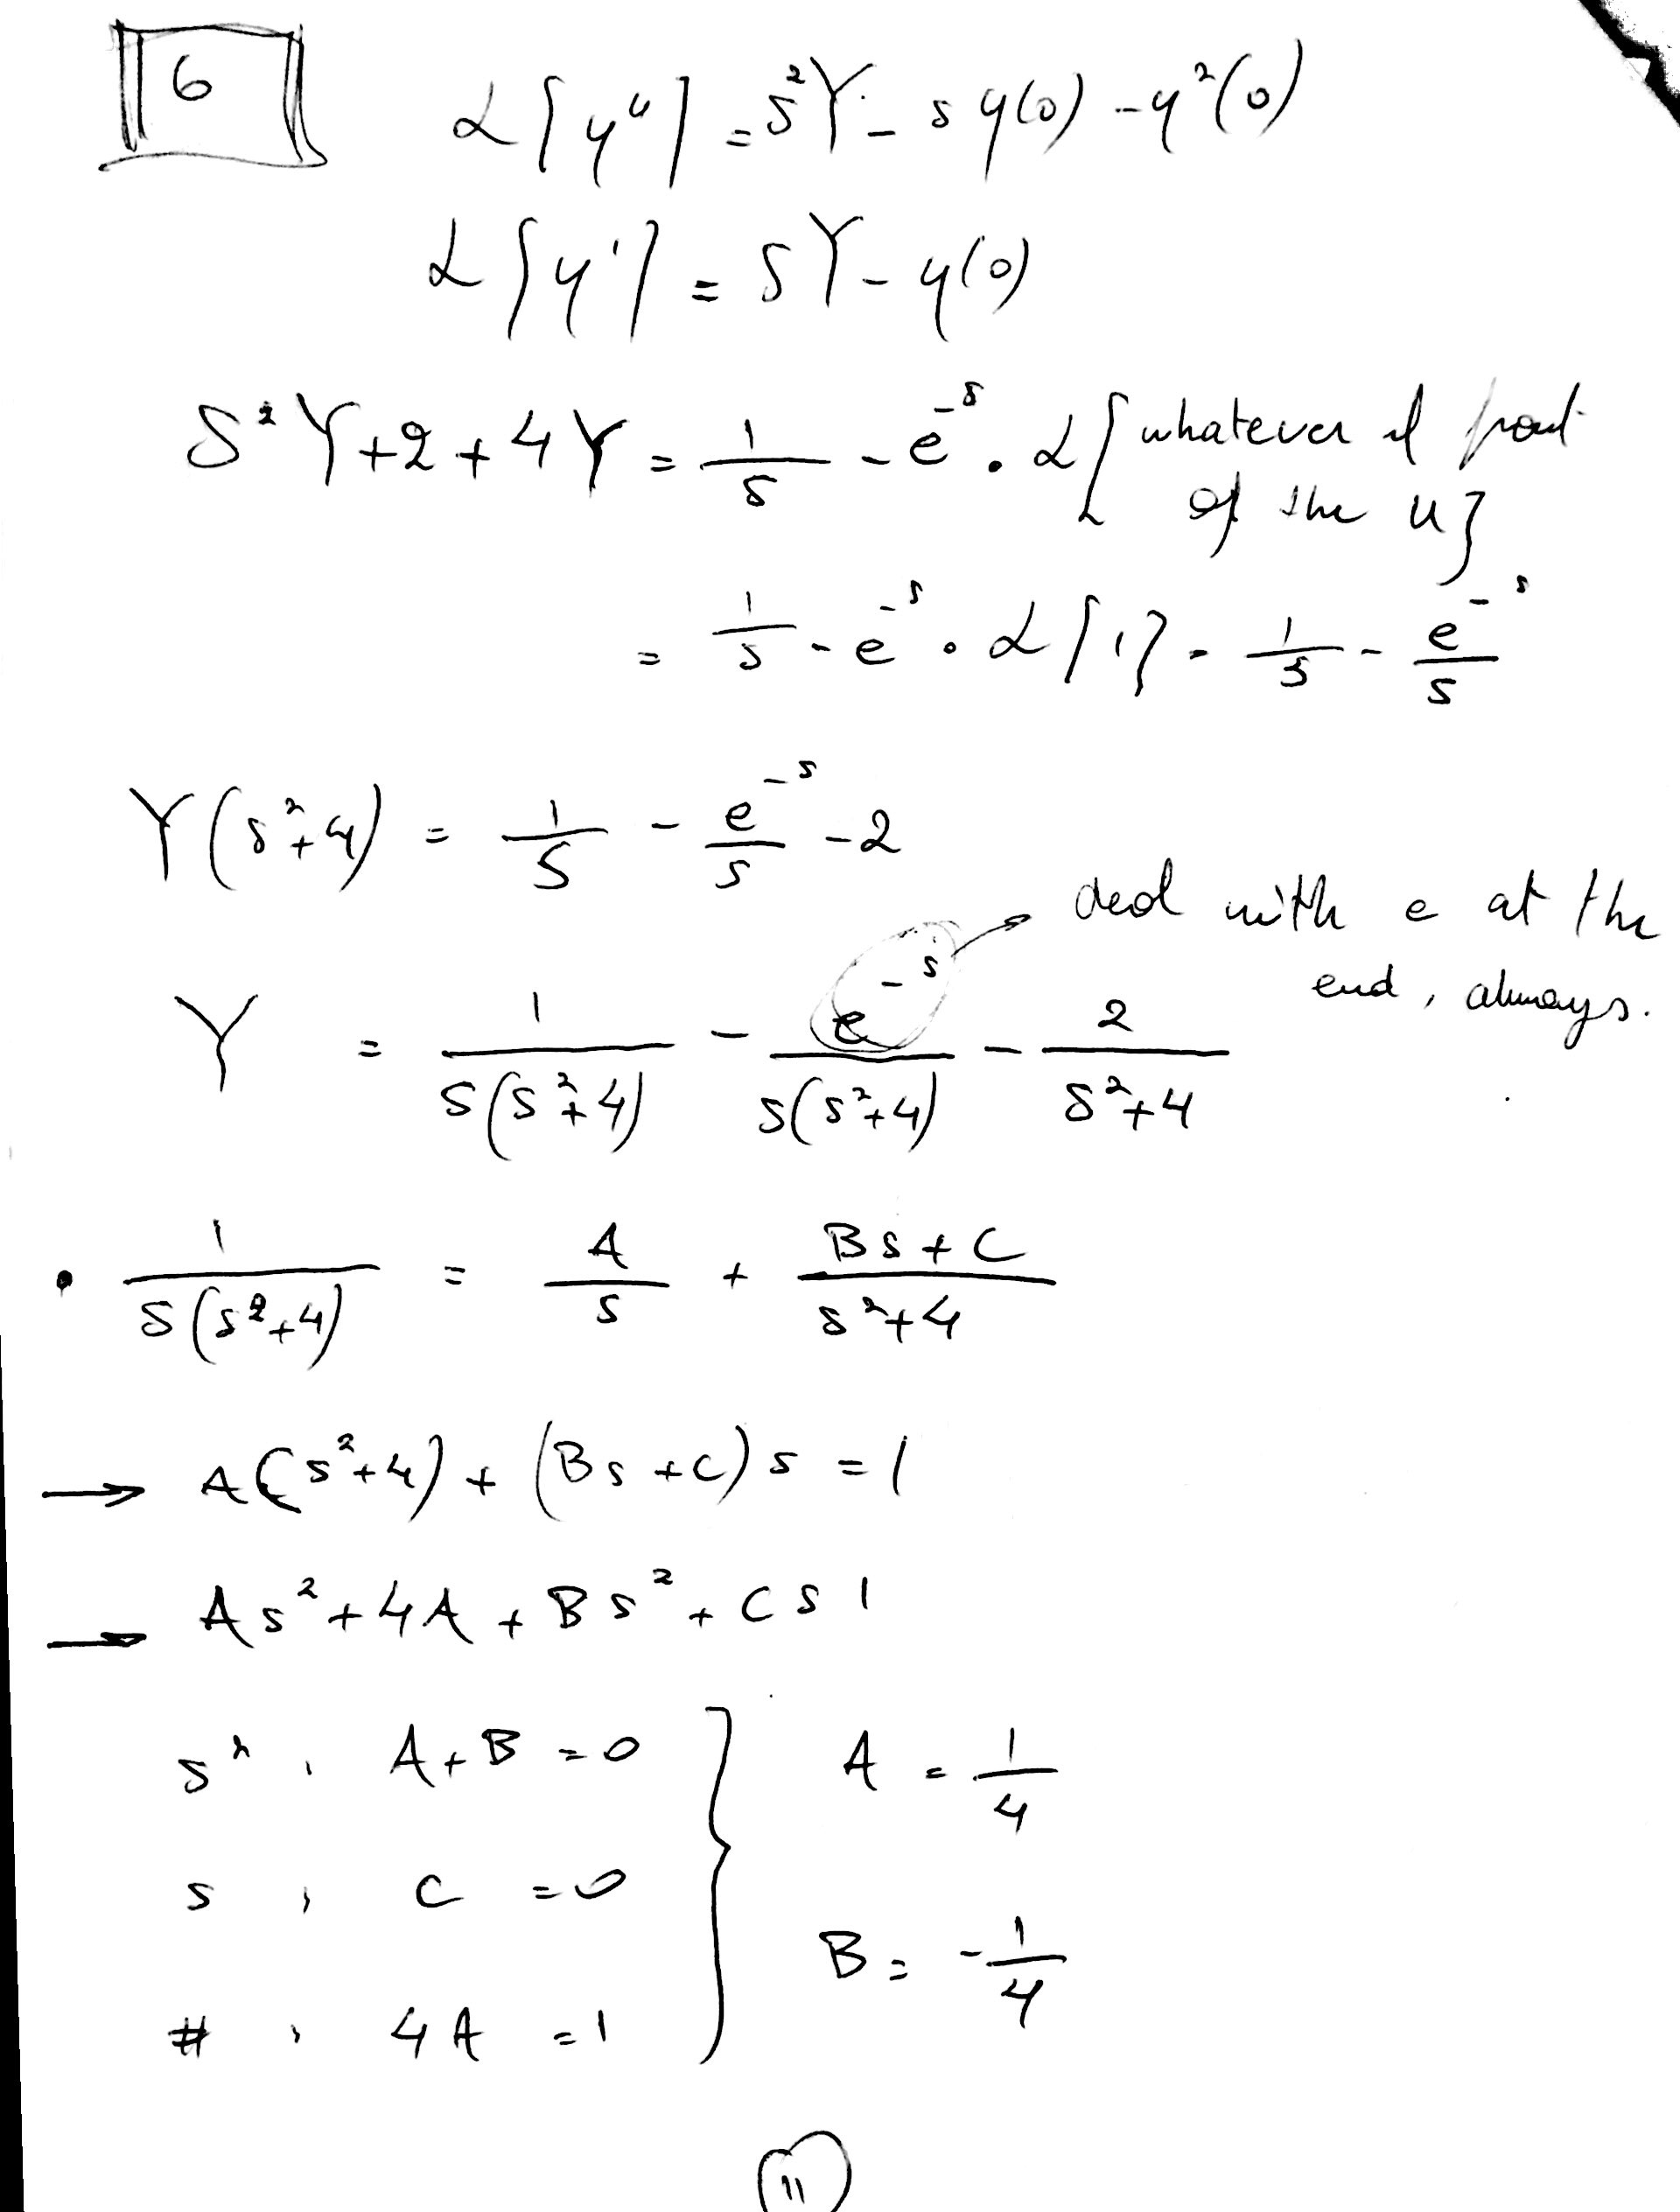 6
ℒ{y''} = s²Y - s y(0) - y²(0)
ℒ{y'} = sY - y(0)
s²Y + 2 + 4Y = 1/s - e^-s · ℒ{whatever if front
of the u}
= 1/s - e^-s · ℒ{1} = 1/s - e^-s/s
Y(s²+4) = 1/s - e^-s/s - 2
deal with e at the
end, always.
Y = 1/(s(s²+4)) - e^-s/(s(s²+4)) - 2/(s²+4)
• 1/(s(s²+4)) = A/s + (Bs+C)/(s²+4)
→ A(s²+4) + (Bs+C)s = 1
→ As² + 4A + Bs² + Cs 1
s² , A+B = 0 } A = 1/4
s , C = 0
B = -1/4
# , 4A = 1
11